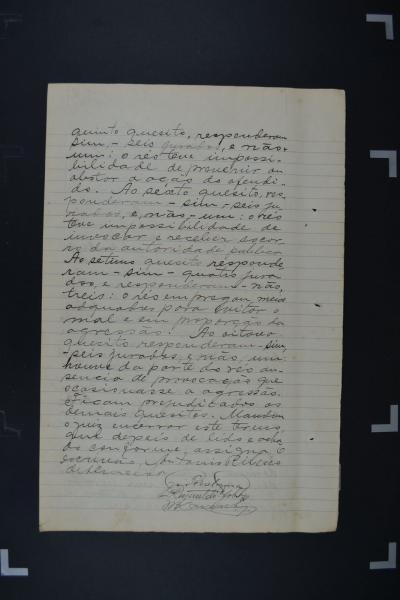 quinto quesito, responderam
sim, - seis jurados, e não,
um: o réo teve impossi-
bilidade de prevenir ou
obstar a ação do ofendi-
do. Ao sexto quesito, res-
ponderam - sim - seis ju
rados, e, não, - um: o réo
teve impossibilidade de
invocar e receber socor-
ro da autoridade publica.
Ao setimo quesito responde
ram - sim - quatro jura
dos, e responderam - não,
treis: o réo empregou meios
adquados para evitar o
mal e em proporção da
agressão. Ao oitavo
quesito responderam - sim,
- seis jurados, e não, um:
houve da parte do réo au-
sencia de provocação que
ocasionasse a agressão.
Ficam prejudicados os
demais quesitos. Mandou
o juiz encerrar este termo,
que depois de lido e acha
do conforme, assigna. O
escrivão, Antonio Ribeiro